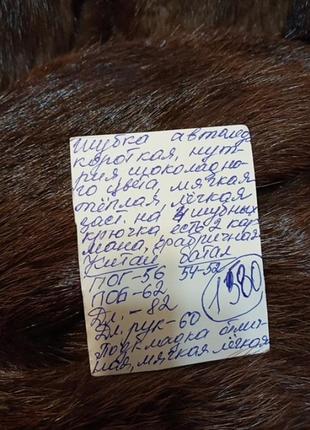 Шубка автолед
короткая, нут
рия шоколадно
го цвета, мягкая
тёплая, лёгкая
заст. на 4 шубных
крючка есть 2 кар
мана, фабричная
Китай батал
ПОГ-56 54-52
ПОБ-62
Дл. - 82 1580
Дл. рук-60
Подкладка отлич
ная, мягкая лёгкая